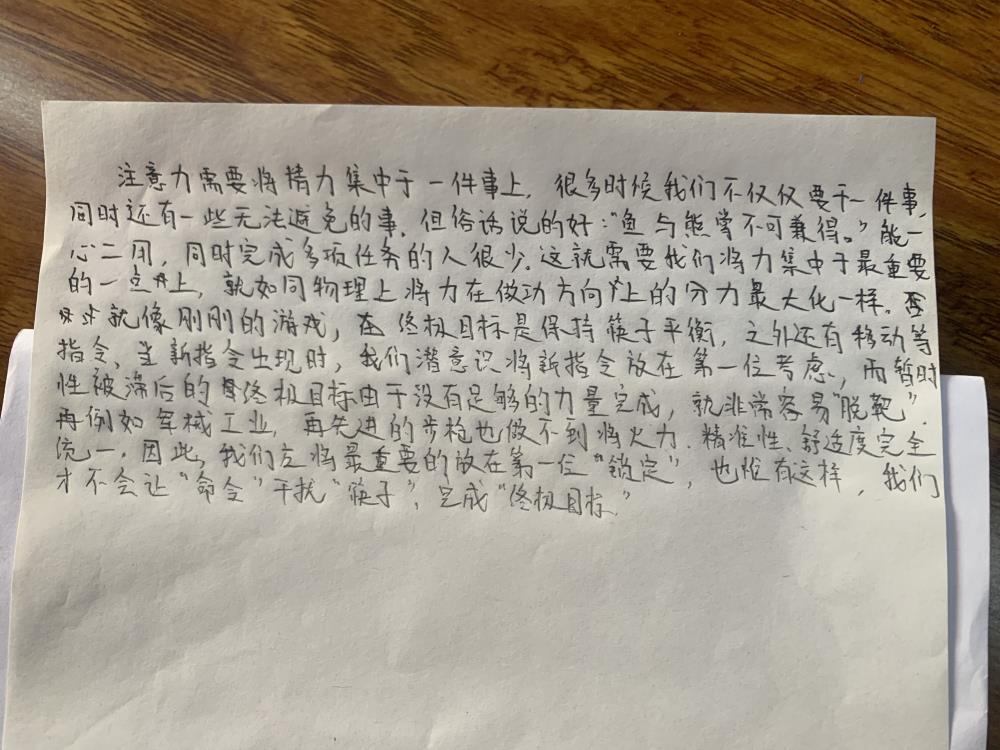 注意力需要将精力集中于一件事上，很多时候我们不仅仅要干一件事，
同时还有一些无法避免的事，但俗话说的好："鱼与熊掌不可兼得。"能一
心二用，同时完成多项任务的人很少。这就需要我们将力集中于最重要
的一点上，就如同物理上将力在做功方向上的分力最大化一样。
就像刚刚的游戏，在终极目标是保持筷子平衡，之外还有移动等
指令、当新指令出现时，我们潜意识将新指令放在第一位考虑，而暂时
性被滞后的终极目标由于没有足够的力量完成，就非常容易"脱靶"．
再例如军械工业，再先进的步枪也做不到将火力．精准性、舒适度完全
统一．因此，我们应将最重要的放在第一位"锁定"，也惟有这样，我们
才不会让"命令"干扰"筷子"，完成"终极目标．"